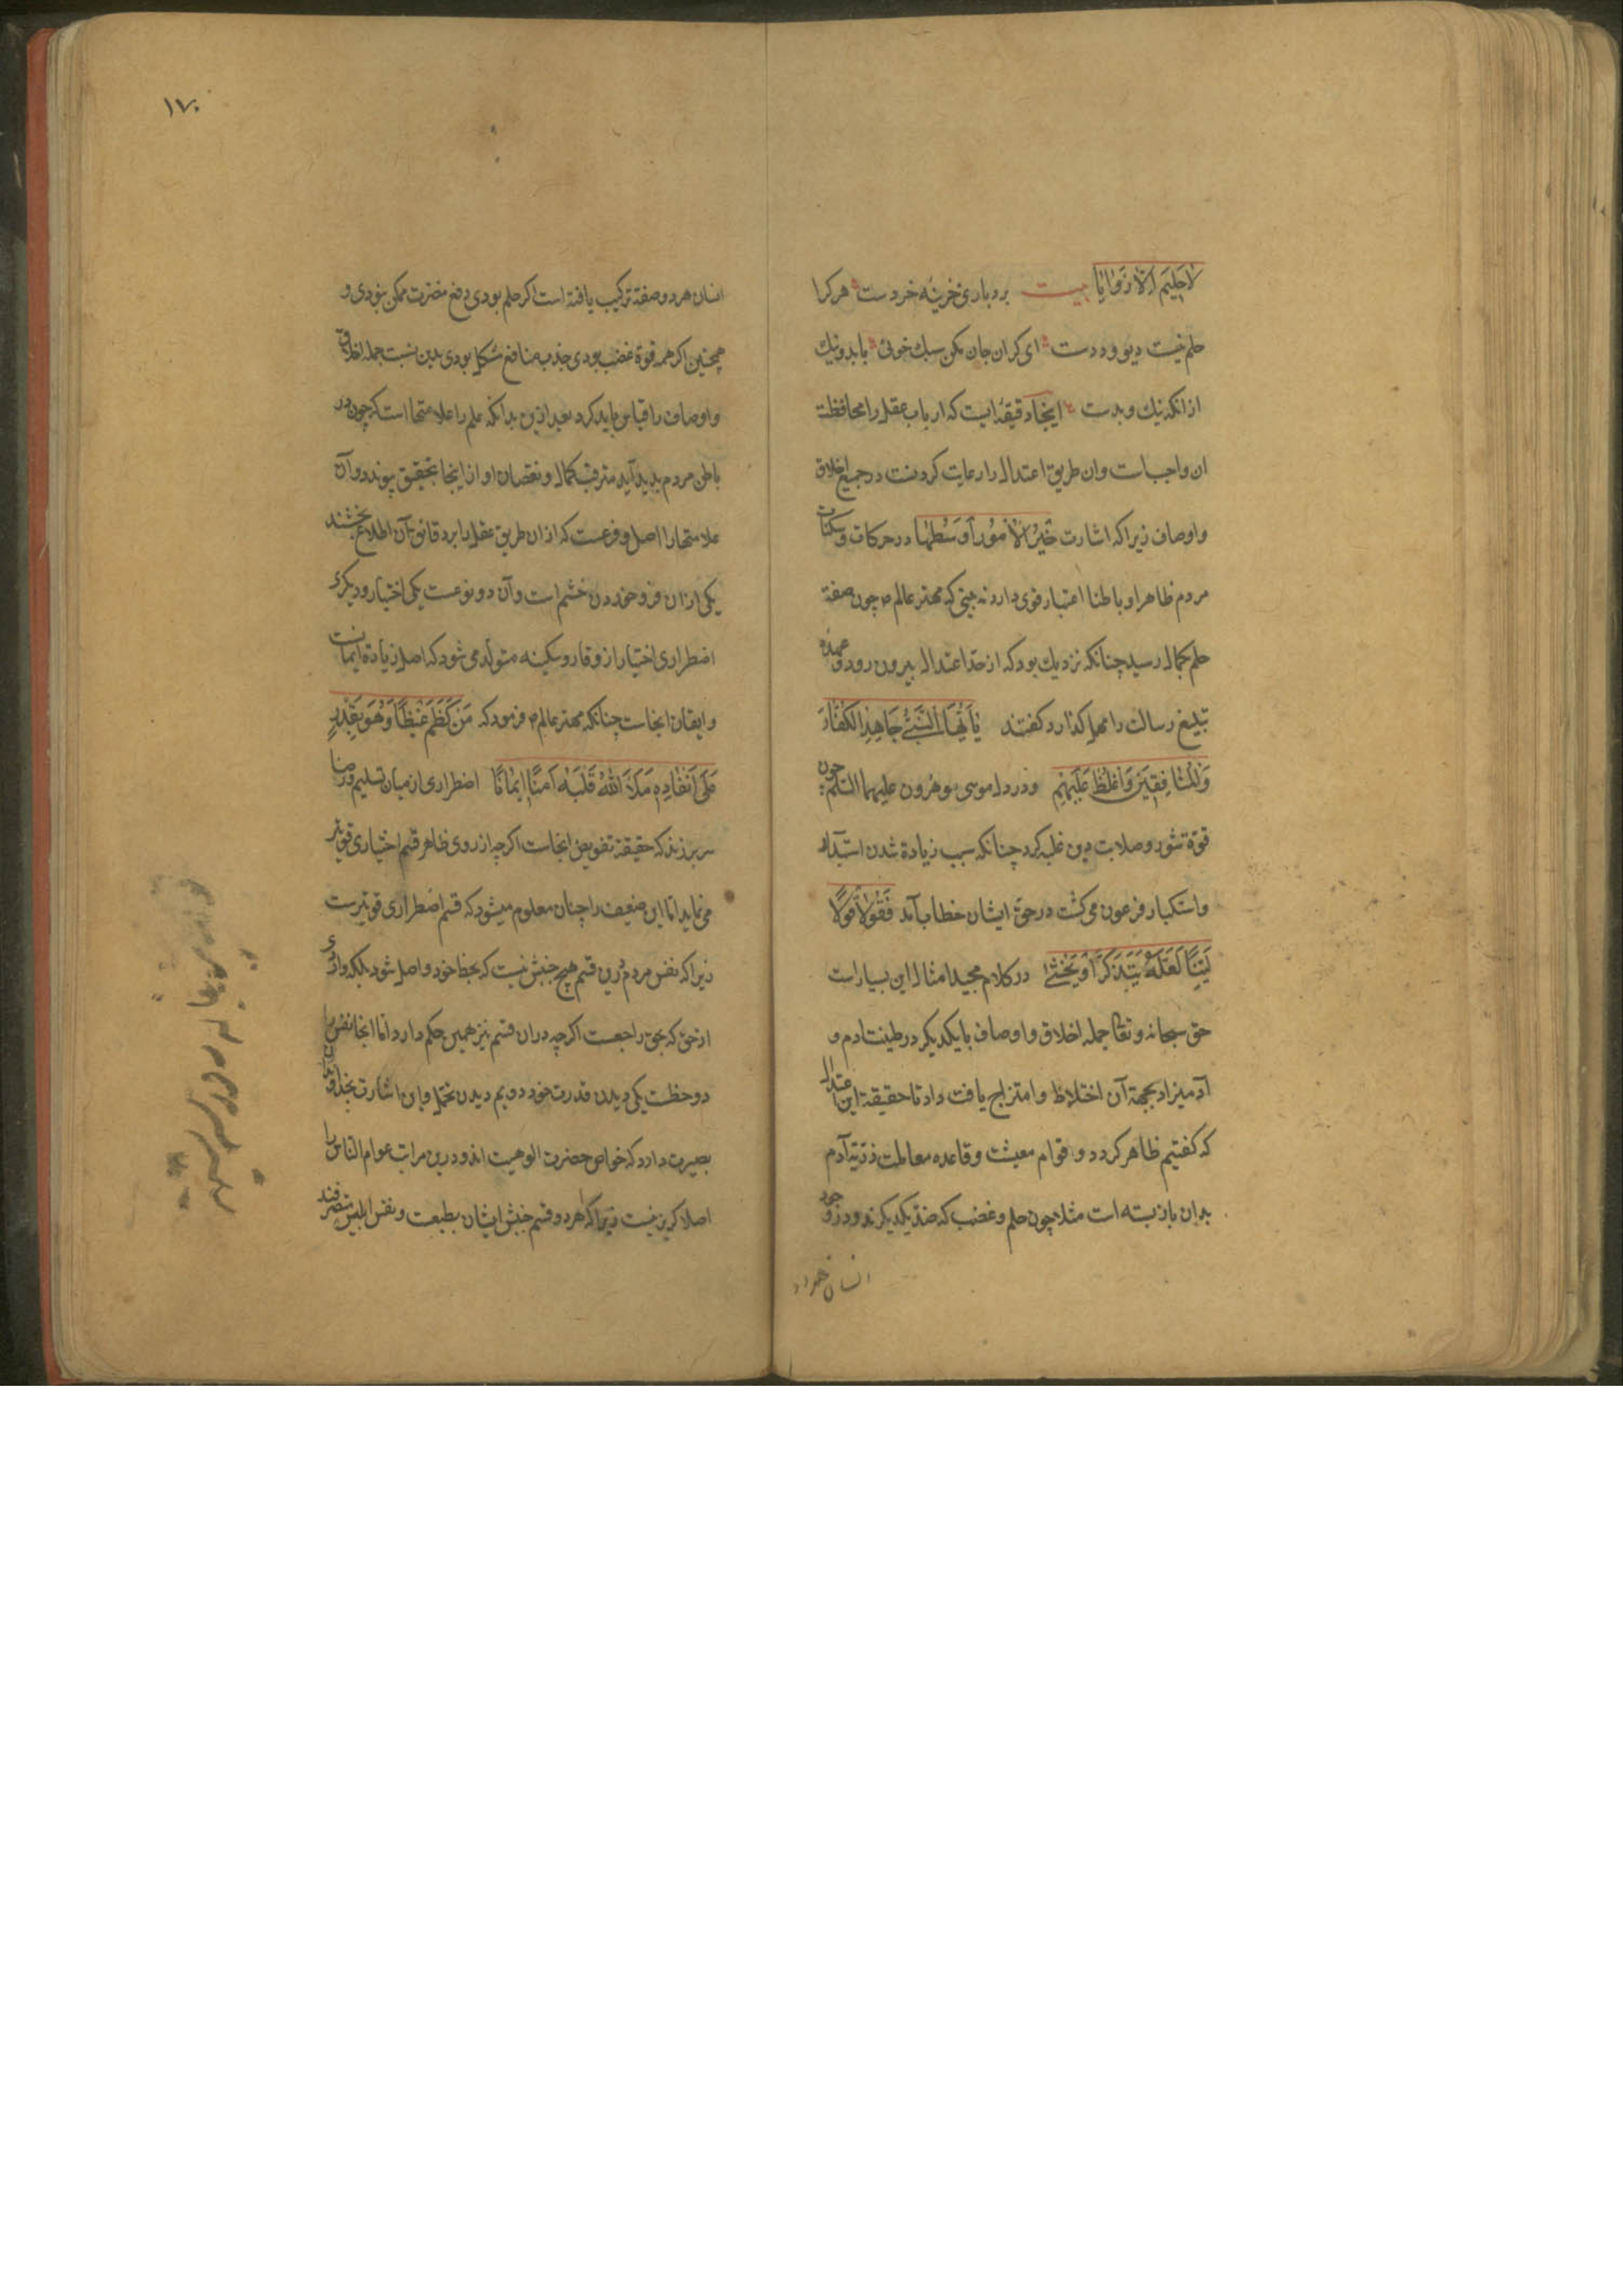 لَاحَلِیمَ اِلَّا ذُوْاَنَاةٍ بیت بردباری خزینهٔ خردست هر کرا
حلم نیست دیو و ددست ای کران جان مکن سبک خوئی بابد و نیک
ازانکه نیک و بدست اینجا دقیقهٔ ایست که ارباب عقل را محافظة
ان واجبات وان طریق اعتدال را رعایت کردنست در جمیع اخلاق
و اوصاف زیرا که اشارت خَیْرُ الْاُمُوْرِ اَوْسَطُهَا در حرکات و سکنات
مردم ظاهرا و باطنا اعتبار قوی دارد نه بینی که مهتر عالم ص چون صفة
حلم بکمال رسید چنانکه نزدیک بود که از حد اعتدال بیرون رود و عهدهٔ
تبلیغ رسالت را مهل کذارد کفتند یٰٓاَیُّهَا النَّبِیُّ جَاهِدِ الْکُفَّارَ
وَالْمُنٰافِقِینَ وَاغْلُظْ عَلَیْهِمْ و در دل موسی و هرون علیهما السلم چون
قوة شور و صلابت دین غلبه کرد چنانکه سبب زیادة شدن استبداد
و استکبار فرعون می کشت در حق ایشان خطاب آمد فَقُوْلَا لَهُ قَوْلًا
لَیِّنًا لَعَلَّهُ یَتَذَکَّرُ اَوْ یَخْشٰی در کلام مجید امثال این بسیار است
حق سبحانه و تعا جمله اخلاق و اوصاف با یکدیکر در طینت ادم و
آدمیزاد بجهة آن اختلاط و امتزاج یافت داد تا حقیقة این اعتدال
که کفتیم ظاهر کردد و قوام معیشت و قاعده معاملت ذریة آدم
بدان باز بسته است مثلا چون حلم و غضب که ضد یکدیکرند و در وجود
انسان هر دو
۱۷۰
انسان هر دو صفة ترکیب یافته است اکر حلم بودی دفع مضرت ممکن نبودی و
همچنین اکر همه قوة غضب بودی جذب منافع مشکل بودی بدین نسبت جمله اخلاق
و اوصاف را قیاس باید کرد بعد ازین بدانکه علم را علامتها است که چون در
باطن مردم پدید آید مترقب کمال و نقصان او از اینجا بتحقیق پیوندد و آن
علامتها را اصل و فرعست که ازان طریق عقل را بر دقائق آن اطلاع بخشند
یکی ازان فرو خوردن خشم است و آن دو نوعست یکی اختیار و دیکری
اضطراری اختیار از وقار و سکینه متولد می شود که اصل زیادة ایمانست
و ایقان انجاست چنانکه مهتر عالم ص فرمود که مَنْ کَظَمَ غَیْظًا وَهُوَ یَقْدِرُ
عَلٰی اَنْفَادِهِ مَلَأَ اللّٰهُ قَلْبَهُ اَمْنًا اِیْمَانًا اضطراری از میان تسلیم و رضا
سر برزند که حقیقة تفویض انجاست اکر چه از روی ظاهر قسم اختیاری قویتر
می نماید اما این ضعیف را چنان معلوم میشود که قسم اضطراری قویترست
زیرا که نفس مردم را درین قسم هیچ جنبش نیست که بحظ خود واصل شود بلکه واردی
از حق که بحق راجعست اکر چه دران قسم نیز همین حکم دارد اما انجا نفس را
دو حظست یکی دیدن قدرت خود دویم دیدن تحمل و این اشارت بخداوند
بصیرت دارد که خواص حضرت الوهیت اند و درین مراتب عوام الناس را
اصلا کریز نیست زیرا که هر دو قسم جنبش ایشان بطبعت و نفس ابلیس متصرفند